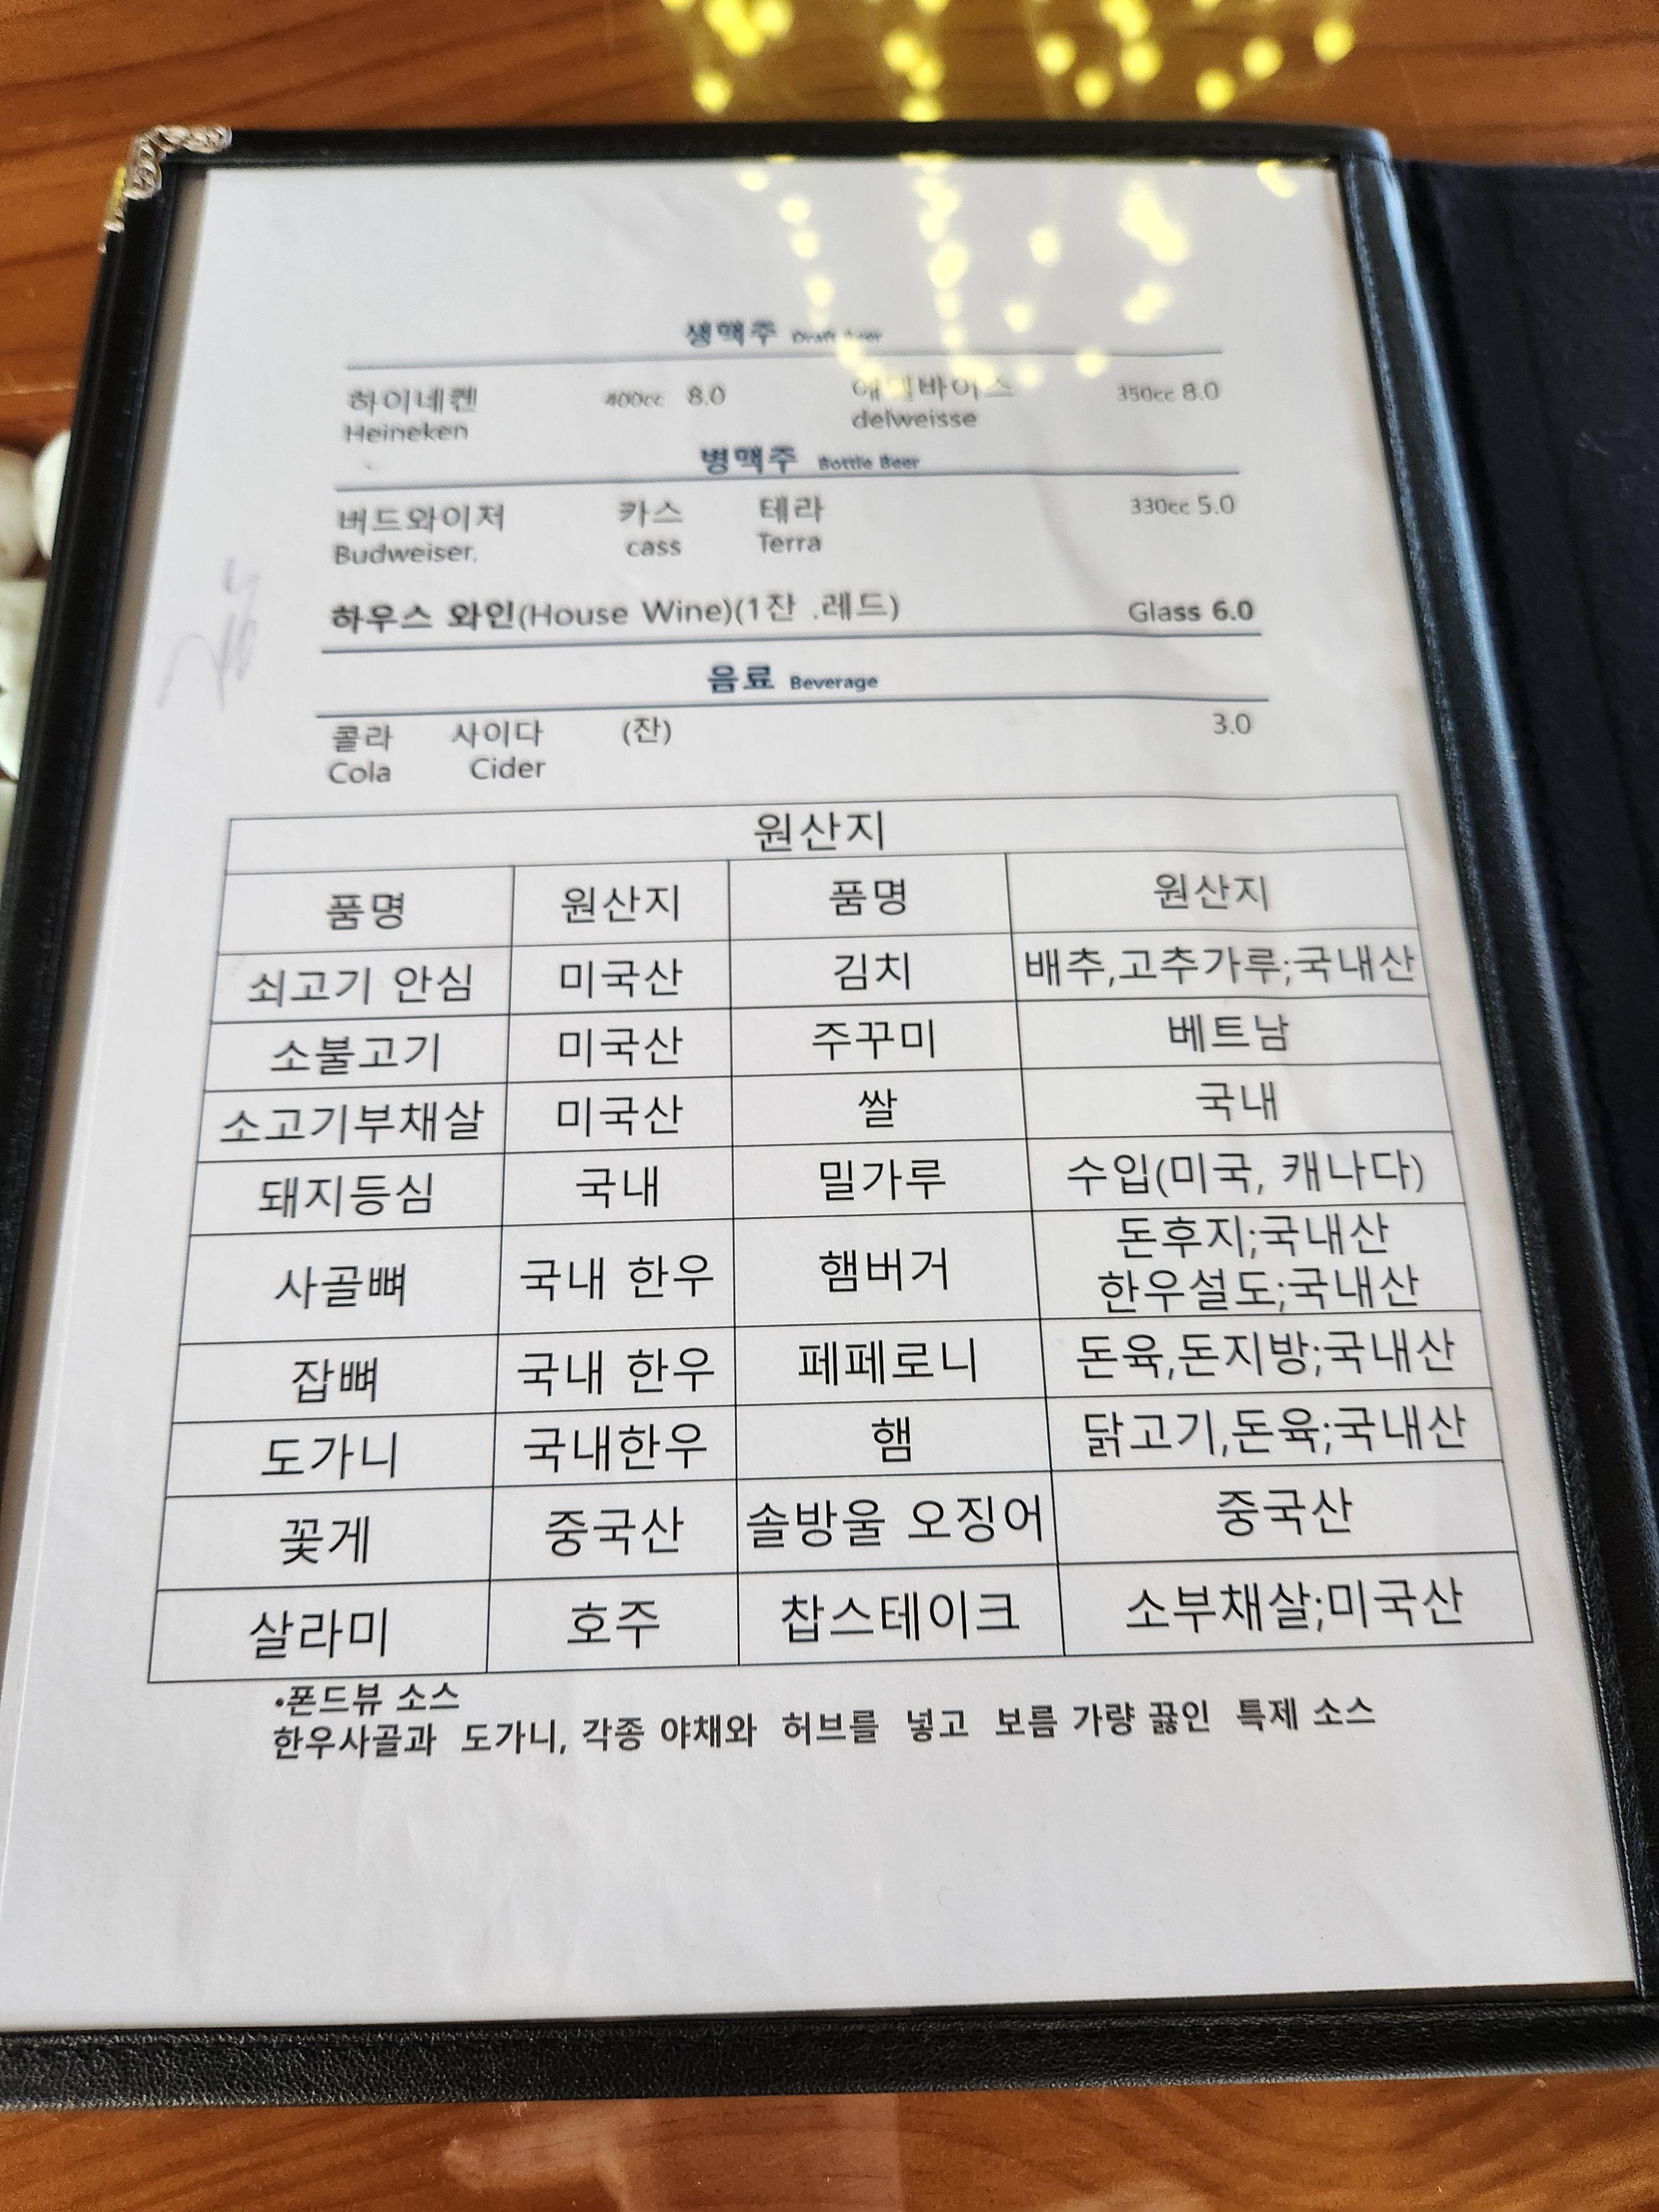 생맥주 Draft Beer
하이네켄 400cc 8.0 에델바이스 350cc 8.0
Heineken delweisse
병맥주 Bottle Beer
버드와이저 카스 테라 330cc 5.0
Budweiser. cass Terra
하우스 와인(House Wine)(1잔 .레드) Glass 6.0
음료 Beverage
콜라 사이다 (잔) 3.0
Cola Cider
원산지
품명 원산지 품명 원산지
쇠고기 안심 미국산 김치 배추,고추가루;국내산
소불고기 미국산 주꾸미 베트남
소고기부채살 미국산 쌀 국내
돼지등심 국내 밀가루 수입(미국, 캐나다)
사골뼈 국내 한우 햄버거 돈후지;국내산
한우설도;국내산
잡뼈 국내 한우 페페로니 돈육,돈지방;국내산
도가니 국내한우 햄 닭고기,돈육;국내산
꽃게 중국산 솔방울 오징어 중국산
살라미 호주 찹스테이크 소부채살;미국산
•폰드뷰 소스
한우사골과 도가니, 각종 야채와 허브를 넣고 보름 가량 끓인 특제 소스